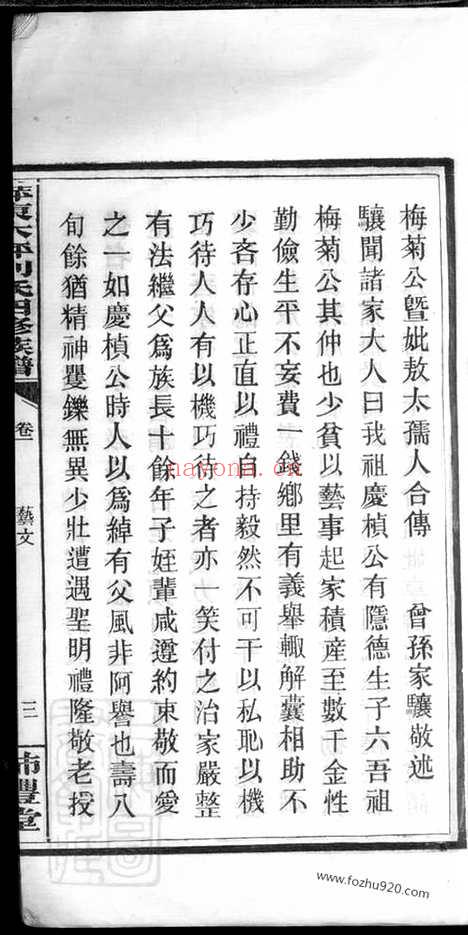 梅菊公暨妣敖太孺人合傳　曾孫家驤敬述
驤聞諸家大人曰我祖慶楨公有隱德生子六吾祖
梅菊公其仲也少貧以藝事起家積產至數千金性
勤儉生平不妄費一錢鄉里有義舉輙解囊相助不
少吝存心正直以禮自持毅然不可干以私恥以機
巧待人人有以機巧待之者亦一笑付之治家嚴整
有法繼父爲族長十餘年子姪輩咸遵約束敬而愛
之一如慶楨公時人以爲綽有父風非阿譽也壽八
旬餘猶精神矍鑠無異少壯遭遇聖明禮隆敬老授
劉氏四修族譜
卷一
藝文
三
沛豐堂
nayona.cn
www.fozhu920.com